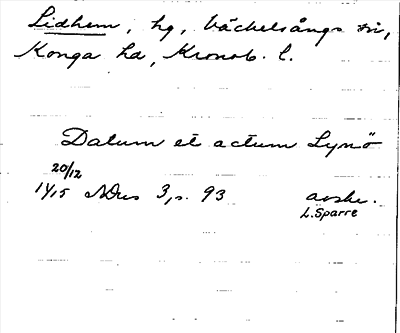 Lidhem, hg, Väckelsångs sn,
Konga hd, Kronob. l.
Datum et actum Lynö
20/12
1415 NDus 3, s. 93 avskr.
L. Sparre